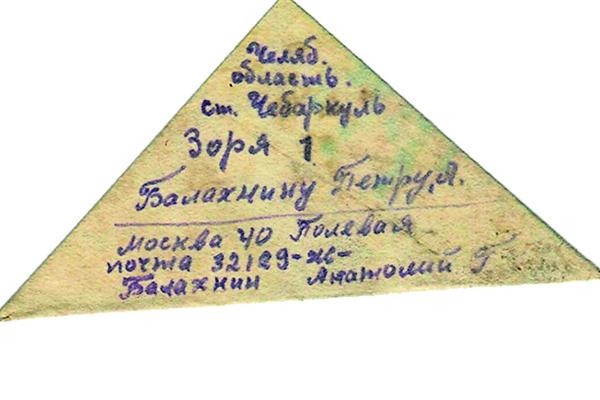 Челяб.
область.
ст. Чебаркуль
Зоря 1
Балахнину Петру, А.
Москва 40 Полевая
почта 32129-ж-
Балахнин Анатолий Г